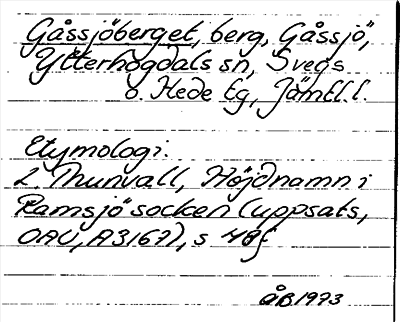 Gåssjöberget, berg, Gåssjö,
Ytterhogdals sn, Svegs
o. Hede tg, Jämtl. l.
Etymologi:
L. Thunvall, Höjdnamn i
Ramsjö socken (uppsats,
OAU, A3167), s 48f
ÅB 1993